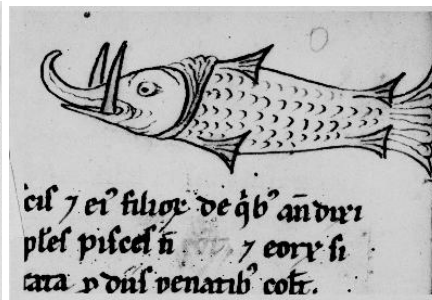 cis ⁊ eiꝰ filioꝝ de q̇bꝰ an̄ dixi
ples pisces ñ ⁊ eoꝝ si
tata ꝑ diu̇s venatibꝰ colt.